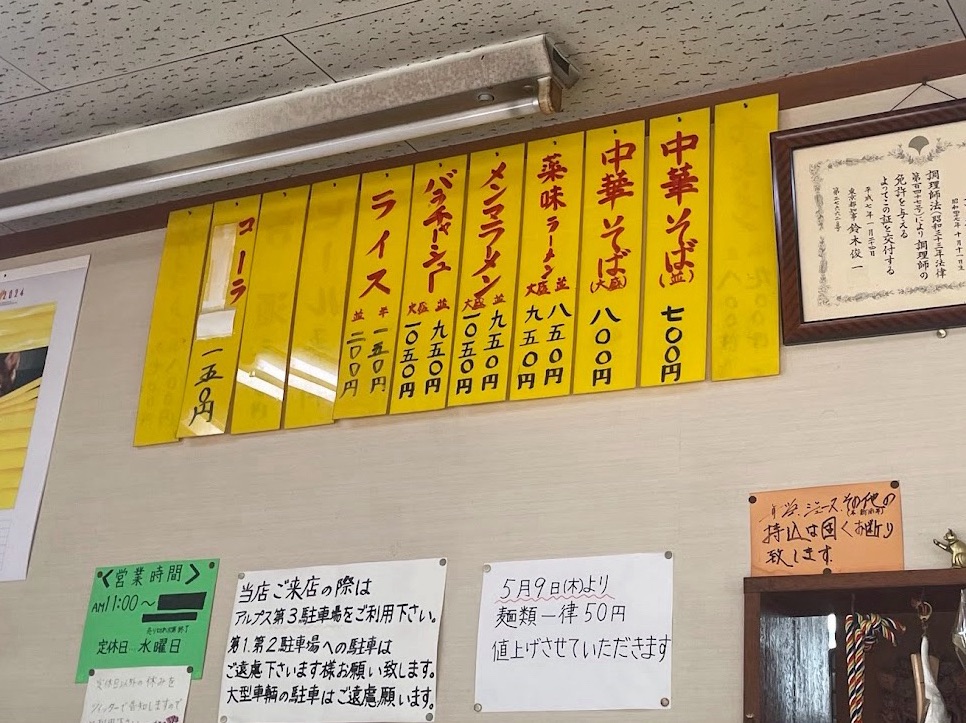 中華そば(並) 七〇〇円
中華そば(大盛) 八〇〇円
薬味ラーメン 並 八五〇円
大盛 九五〇円
メンマラーメン 並 九五〇円
大盛 一〇五〇円
バラチャーシュー 並 九五〇円
大盛 一〇五〇円
ライス 半 一五〇円
並 二〇〇円
コーラ 一五〇円
調理師法(昭和三十三年法律
第百四十七号)により調理師の
免許を与える
よってこの証を交付する
平成七年一月二四日
東京都知事 鈴木俊一
2024
ジュース、その他の
持込は固くお断り
致します
<営業時間>
AM11:00〜
定休日…水曜日
当店ご来店の際は
アルプス第3駐車場をご利用下さい。
第1.第2駐車場への駐車は
ご遠慮下さいます様お願い致します。
大型車輌の駐車はご遠慮願います。
5月9日(木)より
麺類一律50円
値上げさせていただきます
定休日以外の休みを
ツイッターで告知しますので